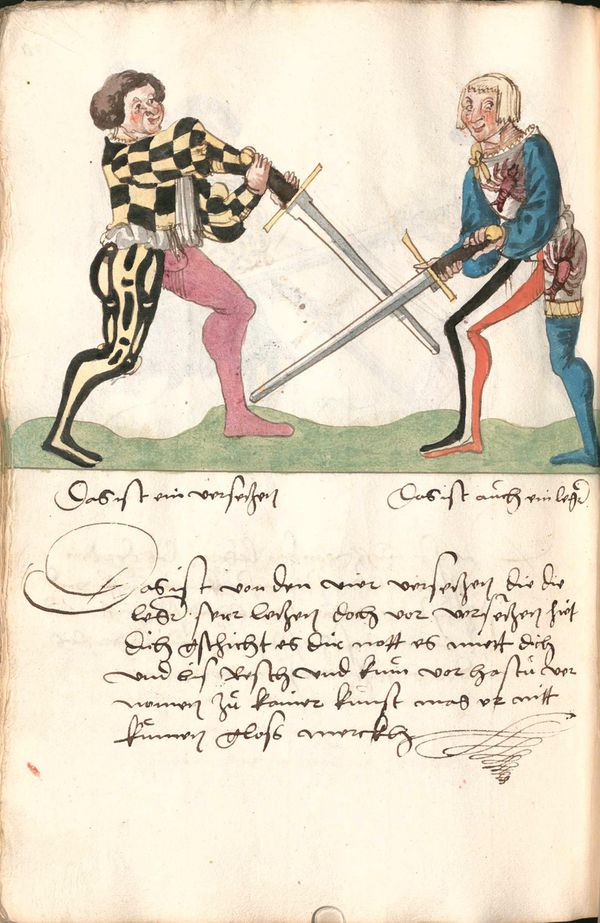 Das ist ein versetzen
Das ist auch ein leger
Das ist von den vier versetzen die die
leger serr letzen doch vor versetzen hiet
dich gschicht es dir nott es muett dich
und bis Resch und kün vor hastu ver
nomen zu kainer kunst mag er nitt
kumen gloss merckh